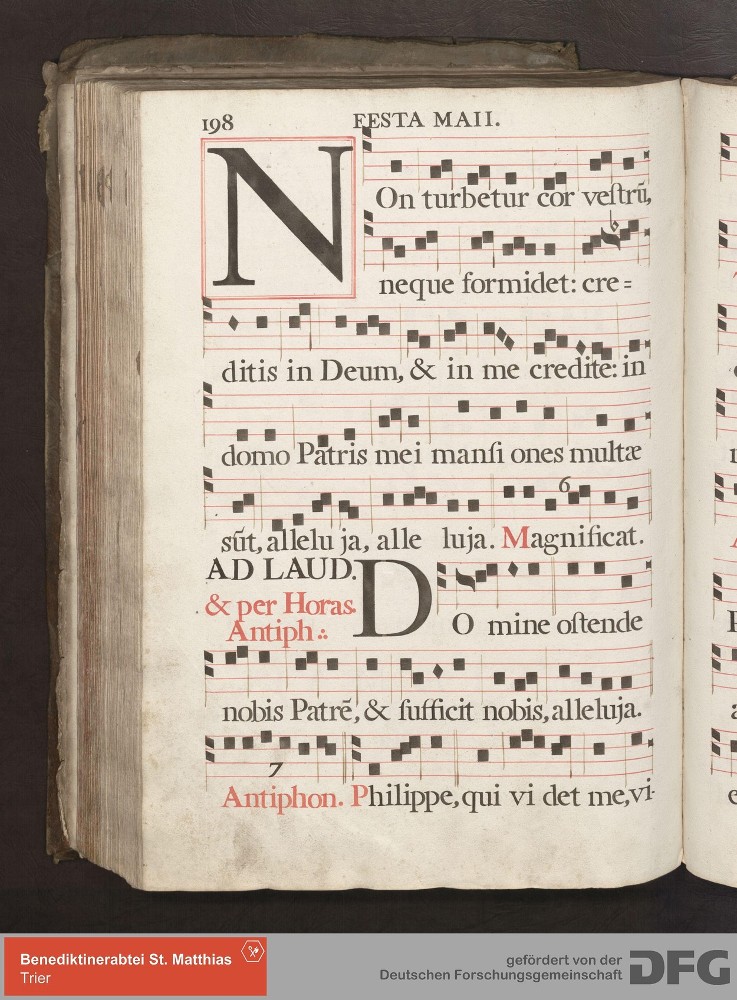 198 FESTA MAII.
NOn turbetur cor veſtrū,
neque formidet: cre=
ditis in Deum, & in me credite: in
domo Patris mei manſi ones multæ
sūt, allelu ja, alle luja. Magnificat.
6
AD LAUD.
& per Horas.
Antiph ∴
DO mine oſtende
nobis Patrē, & ſufficit nobis, alleluja.
7
Antiphon. Philippe, qui vi det me, vi-
Benediktinerabtei St. Matthias
Trier
gefördert von der
Deutschen Forschungsgemeinschaft
DFG